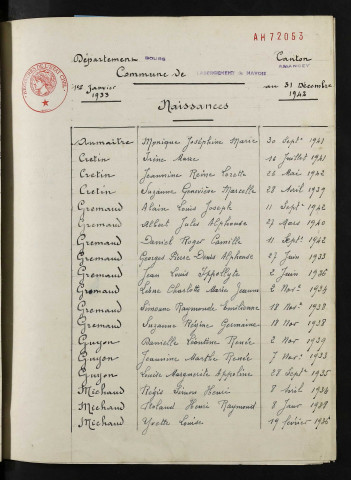 AH72053
Département DOUBS Canton
Commune de
1er Janvier 1933 au 31 Décembre 1942
Naissances
Aumaitre Monique Joséphine Marie 30 Septe 1941
Cretin Irène Marie 16 Juillet 1941
Cretin Jeannine Reine Lorette 26 Mai 1942
Cretin Suzanne Geneviève Marcelle 28 Avril 1939
Gremaud Alain Louis Joseph 11 Septe 1942
Gremaud Albert Jules Alphonse 27 Mars 1940
Gremaud Daniel Roger Camille 11 Septe 1942
Gremaud Georges Pierre Denis Alphonse 27 Juin 1933
Gremaud Jean Louis Hippolyte 2 Juin 1936
Gremaud Liliane Charlotte Marie Jeanne 2 Nov 1934
Gremaud Simonne Raymonde Emilienne 18 Nov 1938
Gremaud Suzanne Régine Germaine 18 Nov 1938
Guyon Danielle Léontine Renée 2 Nov 1939
Guyon Jeannine Marthe Renée 7 Nov 1933
Guyon Louise Marguerite Appoline 28 Septe 1935
Mechaud Régis Simon Henri 8 Avril 1934
Mechaud Roland Henri Raymond 8 Janv 1938
Mechaud Yvette Louise 19 février 1935